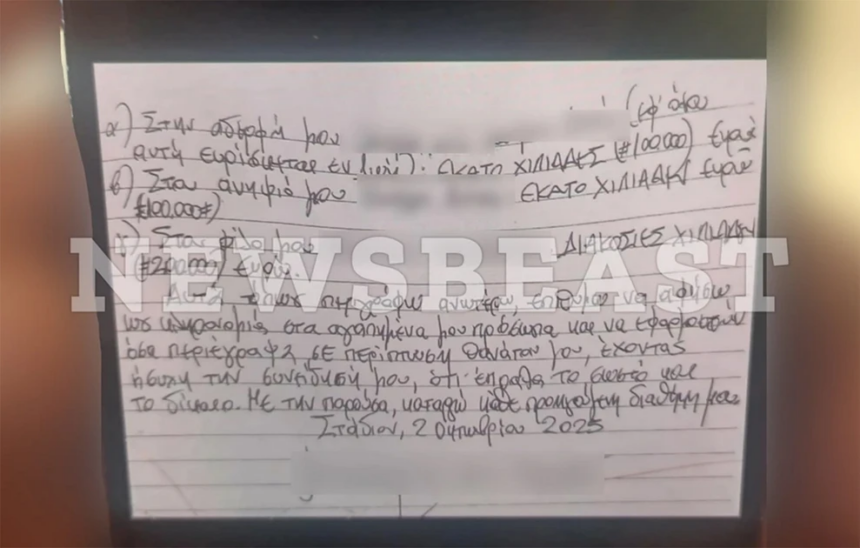 α) Στην αδερφή μου (εφ' όσον
αυτή ευρίσκεται εν ζωή): ΕΚΑΤΟ ΧΙΛΙΑΔΕΣ (#100.000) Ευρώ
β) Στον ανιψιό μου ΕΚΑΤΟ ΧΙΛΙΑΔΕΣ Ευρώ
(#100.000#)
γ) Στον φίλο μου ΔΙΑΚΟΣΙΕΣ ΧΙΛΙΑΔΕΣ
(#200.000) Ευρώ.
NEWSBEAST
Αυτά όπως περιγράφω ανωτέρω, επιθυμώ να αφήσω
ως κληρονομιά στα αγαπημένα μου πρόσωπα και να εφαρμοστούν
όσα περιέγραψα, ΣΕ περίπτωση θανάτου μου, έχοντας
ήσυχη την συνείδησή μου, ότι έπραξα το σωστό και
το δίκαιο. Με την παρούσα, καταργώ κάθε προηγούμενη διαθήκη μου.
Στάδιον, 2 Οκτωβρίου 2025